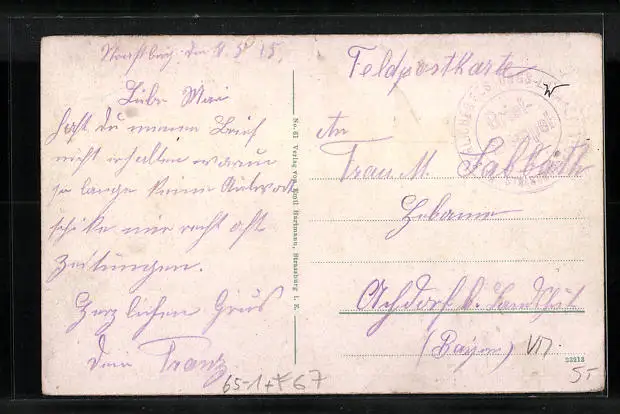 Strassburg, den 4.5.15.
Liebe Mari
hast du meinen Brief
nicht erhalten warum
so lange keine Antwort
schike mir recht oft
Zeitungen.
Herzlichen Grus
dein Franz
No. 61 Verlag von Emil Hartmann, Strassburg i. E.
Feldpostkarte
An
Frau M.
Hebamme
Achdorf b. Landshut
(Bayern) VII.
23213
65-1+F67
5-